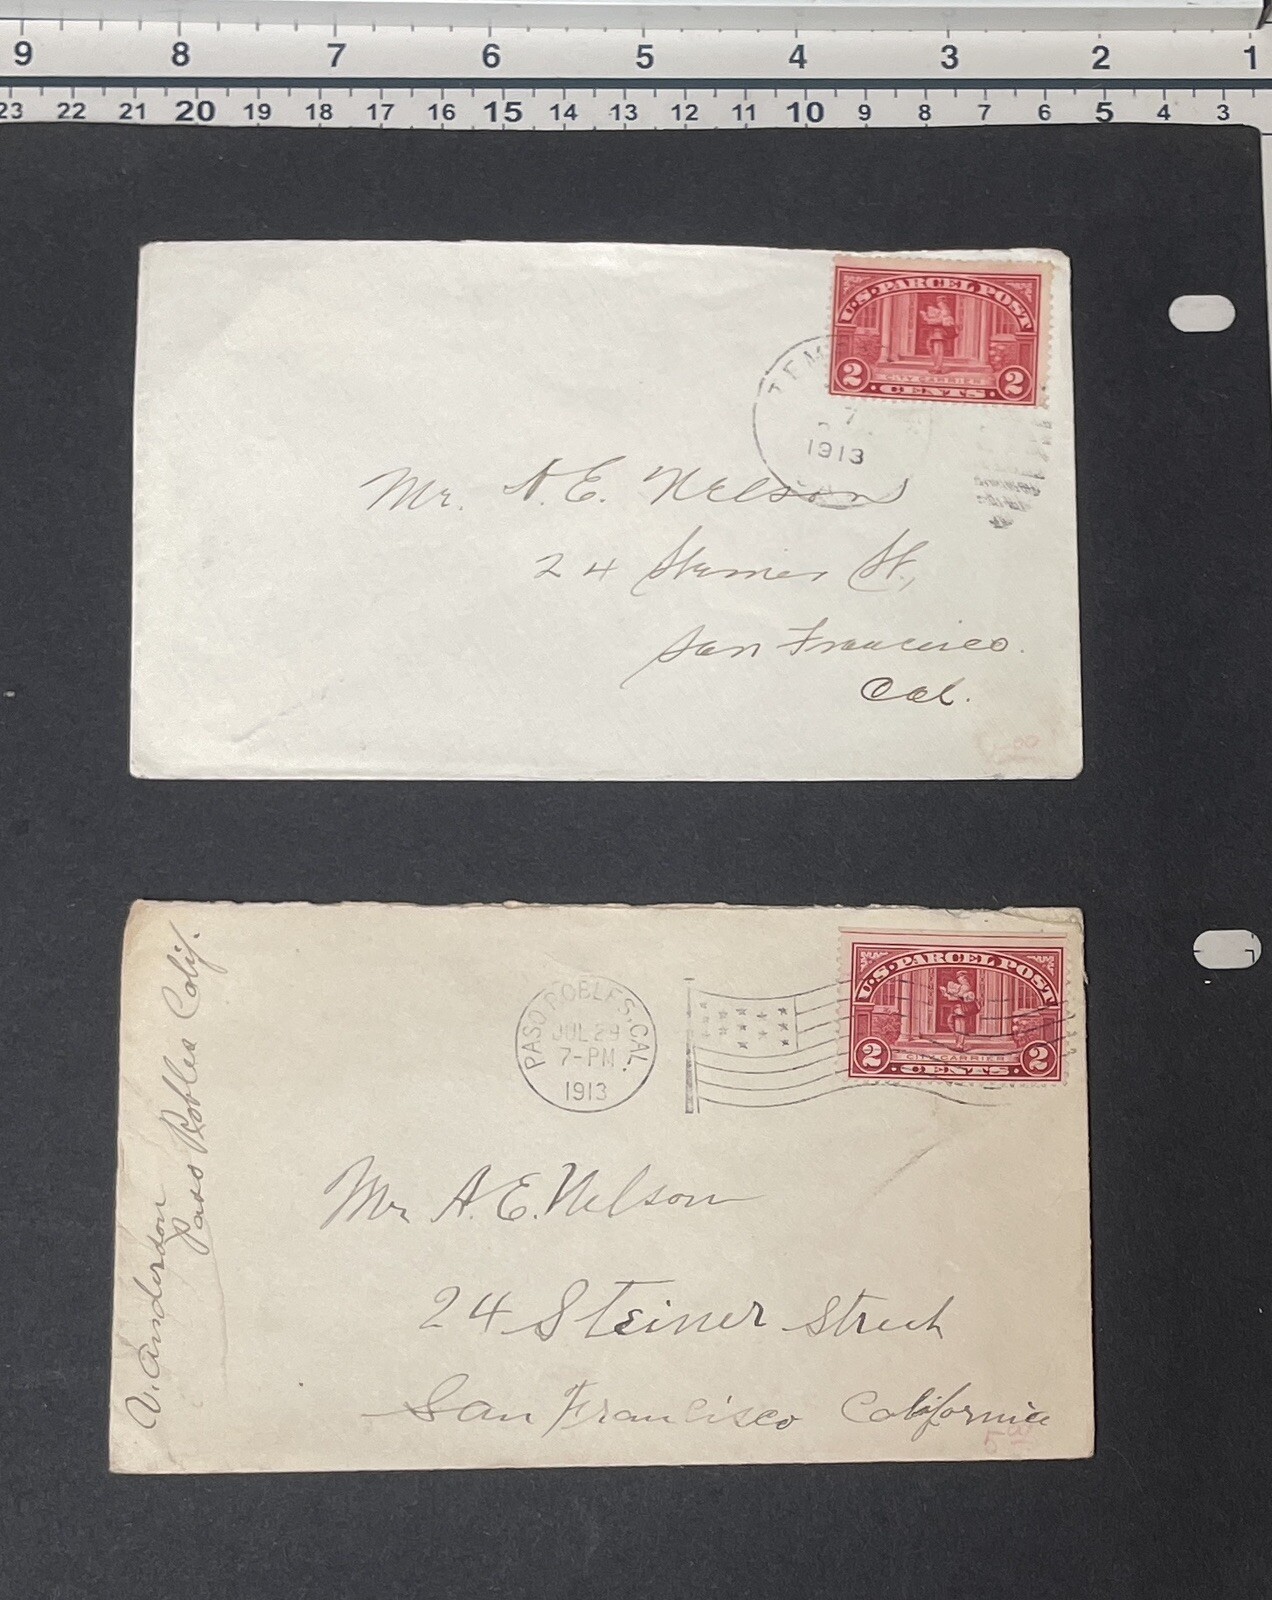 9 8 7 6 5 4 3 2 1
23 22 21 20 19 18 17 16 15 14 13 12 11 10 9 8 7 6 5 4 3
U.S. PARCEL POST
2 CITY CARRIER 2
CENTS
7
1913
Mr. A. E. Nelson
24 Steiner St.,
San Francisco.
Cal.
V. Anderson
Paso Robles Calif.
PASO ROBLES, CAL.
JUL 29
7-PM
1913
U.S. PARCEL POST
2 CITY CARRIER 2
CENTS
Mr A. E. Nelson
24 Steiner Street
San Francisco California